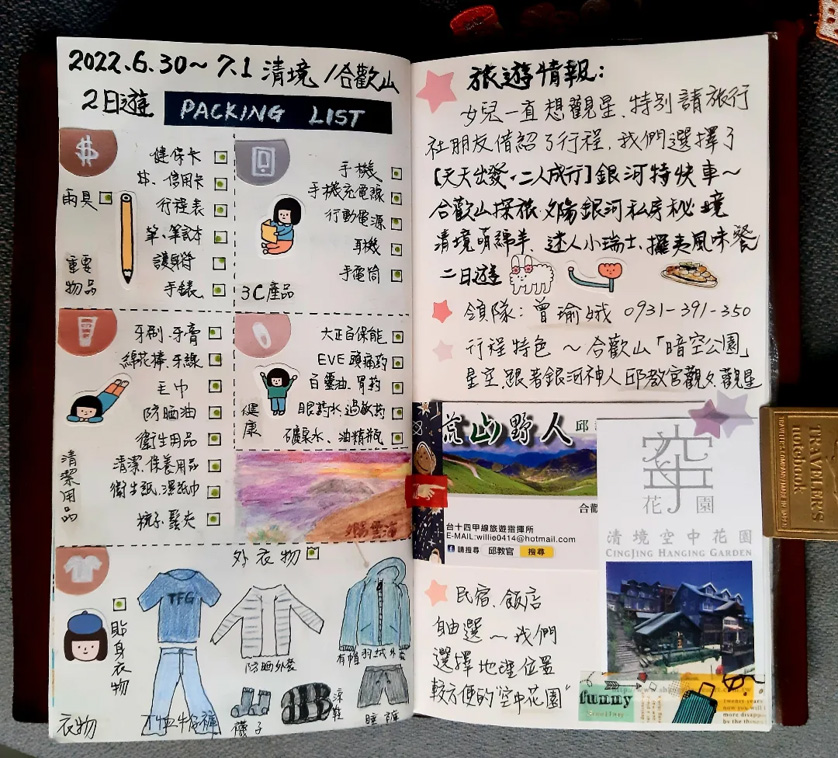 2022.6.30~7.1 清境/合歡山
2日遊 PACKING LIST
健保卡
$、信用卡
雨具
行程表
筆、筆記本
護身符
手錶
重要
物品
手機
手機充電線
行動電源
耳機
手電筒
3C產品
牙刷、牙膏
綿花棒、牙線
毛巾
防晒油
衛生用品
清潔、保養用品
衛生紙、濕紙巾
梳子、髮夾
清潔用品
大正百保能
EVE頭痛药
百靈油、胃药
眼药水、過敏药
礦泉水、油精瓶
健康
外衣物
TFG
貼身衣物
防晒外套
有帽羽絨外套
襪子
涼鞋
睡褲
衣物
旅遊情報:
女兒一直想觀星,特別請旅行
社朋友借紹了行程,我們選擇了
【天天出發·二人成行】銀河特快車~
合歡山探旅.夕陽銀河私房秘境
清境萌綿羊、迷人小瑞士、擺夷風味餐
二日遊
領隊:曾瑜娥 0931-391-350
行程特色~合歡山「暗空公園」
星空.跟著銀河神人邱教官觀夕.觀星
荒山野人 邱
合歡
台十四甲線旅遊指揮所
E-MAIL:willie0414@hotmail.com
請搜尋 邱教官 搜尋
空中
花園
清境空中花園
CINGJING HANGING GARDEN
民宿、飯店
自選~我們
選擇地理位置
較方便的"空中花園"
funny
TRAVELER'S
notebook